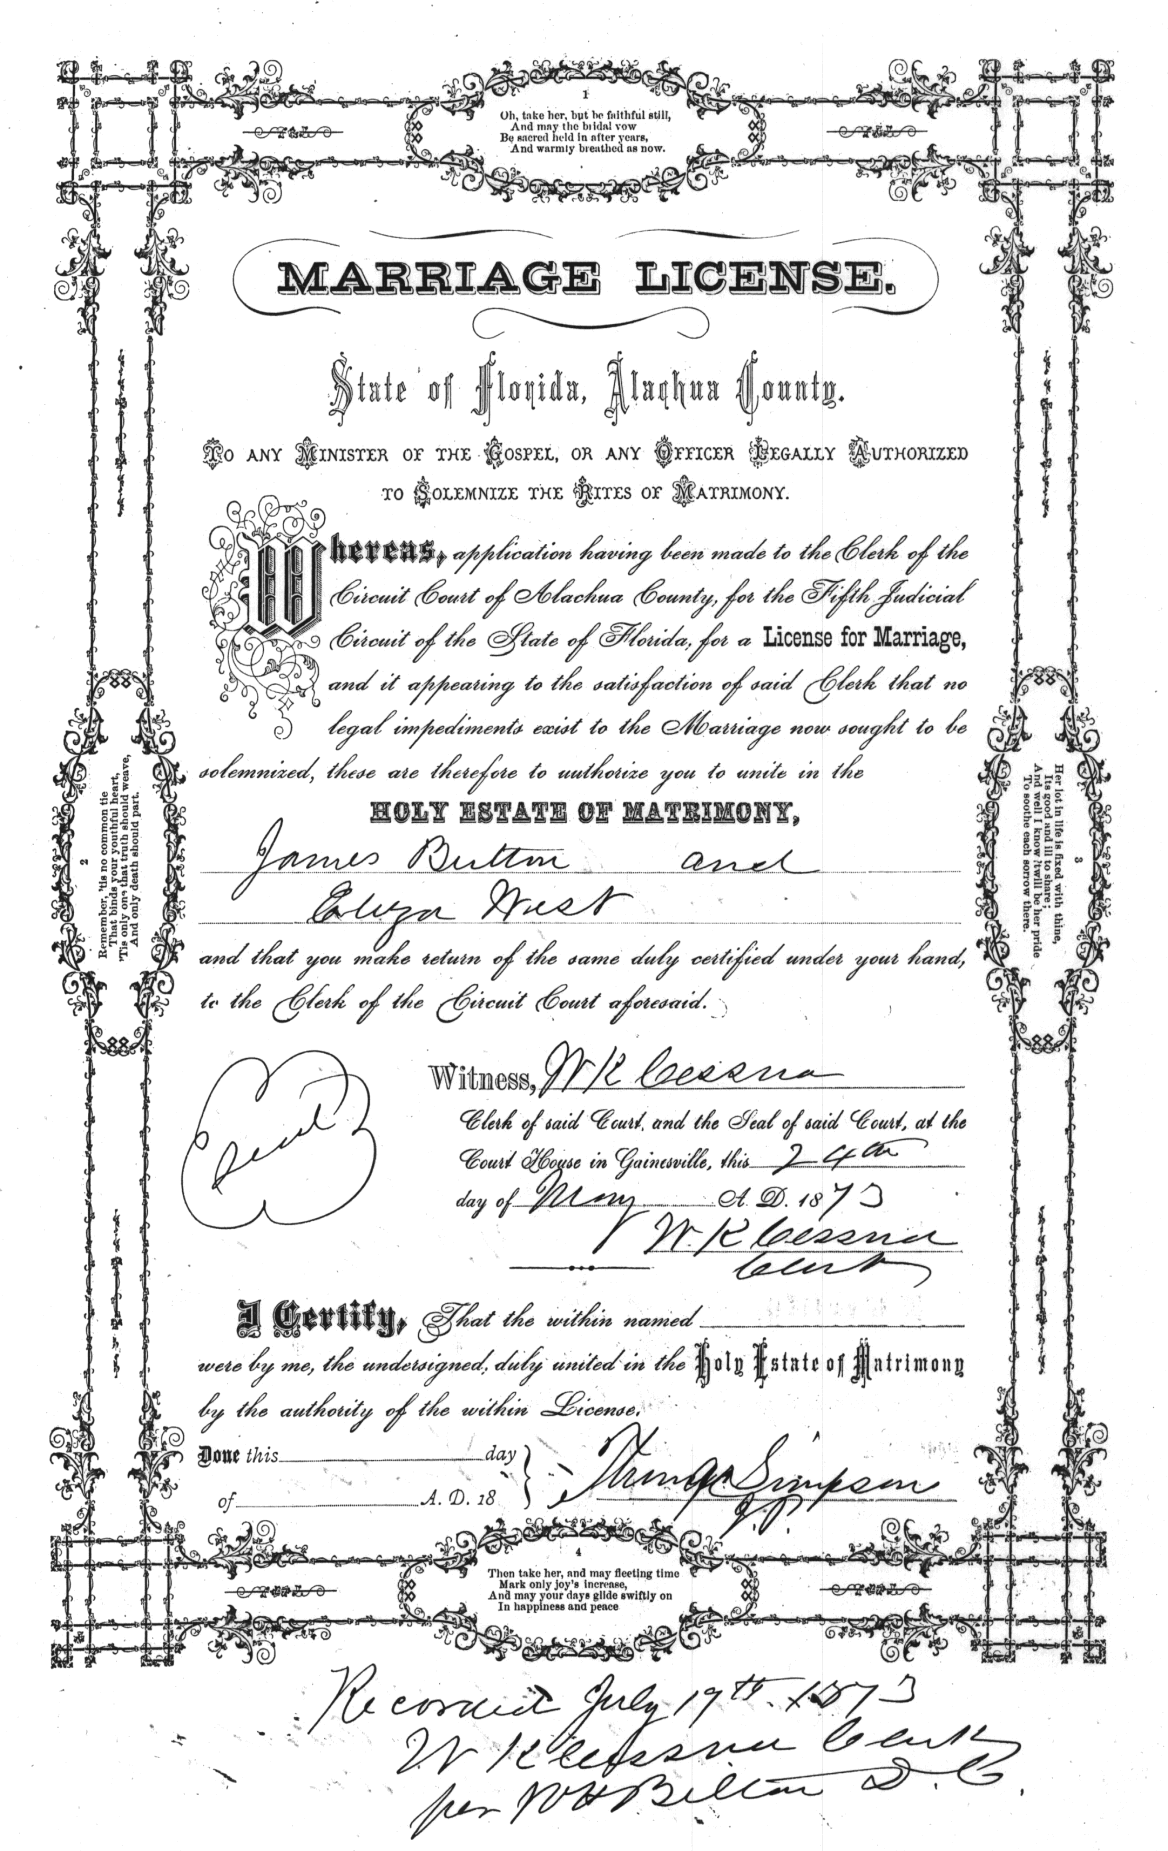 1
Oh, take her, but be faithful still,
And may the bridal vow
Be sacred held in after years,
And warmly breathed as now.
MARRIAGE LICENSE.
State of Florida, Alachua County.
TO ANY MINISTER OF THE GOSPEL, OR ANY OFFICER LEGALLY AUTHORIZED
TO SOLEMNIZE THE RITES OF MATRIMONY.
Whereas, application having been made to the Clerk of the
Circuit Court of Alachua County, for the Fifth Judicial
Circuit of the State of Florida, for a License for Marriage,
and it appearing to the satisfaction of said Clerk that no
legal impediments exist to the Marriage now sought to be
solemnized, these are therefore to authorize you to unite in the
HOLY ESTATE OF MATRIMONY,
James Button and
Eliza West
and that you make return of the same duly certified under your hand,
to the Clerk of the Circuit Court aforesaid.
2
Remember, 'tis no common tie
That binds your youthful heart,
'Tis only one that truth should weave,
And only death should part.
3
Her lot in life is fixed with thine,
Its good and ill to share;
And well I know 'twill be her pride
To soothe each sorrow there.
Seal
Witness, W K Cessna
Clerk of said Court, and the Seal of said Court, at the
Court House in Gainesville, this 24th
day of May A. D. 1873
W. K Cessna
Clerk
I Certify, That the within named
were by me, the undersigned, duly united in the Holy Estate of Matrimony
by the authority of the within License.
Done this day
of A. D. 18
Simpson
J. P.
4
Then take her, and may fleeting time
Mark only joy's increase,
And may your days glide swiftly on
In happiness and peace
Recorded July 19th 1873
W K Cessna Clerk
per W H Belton D. C.